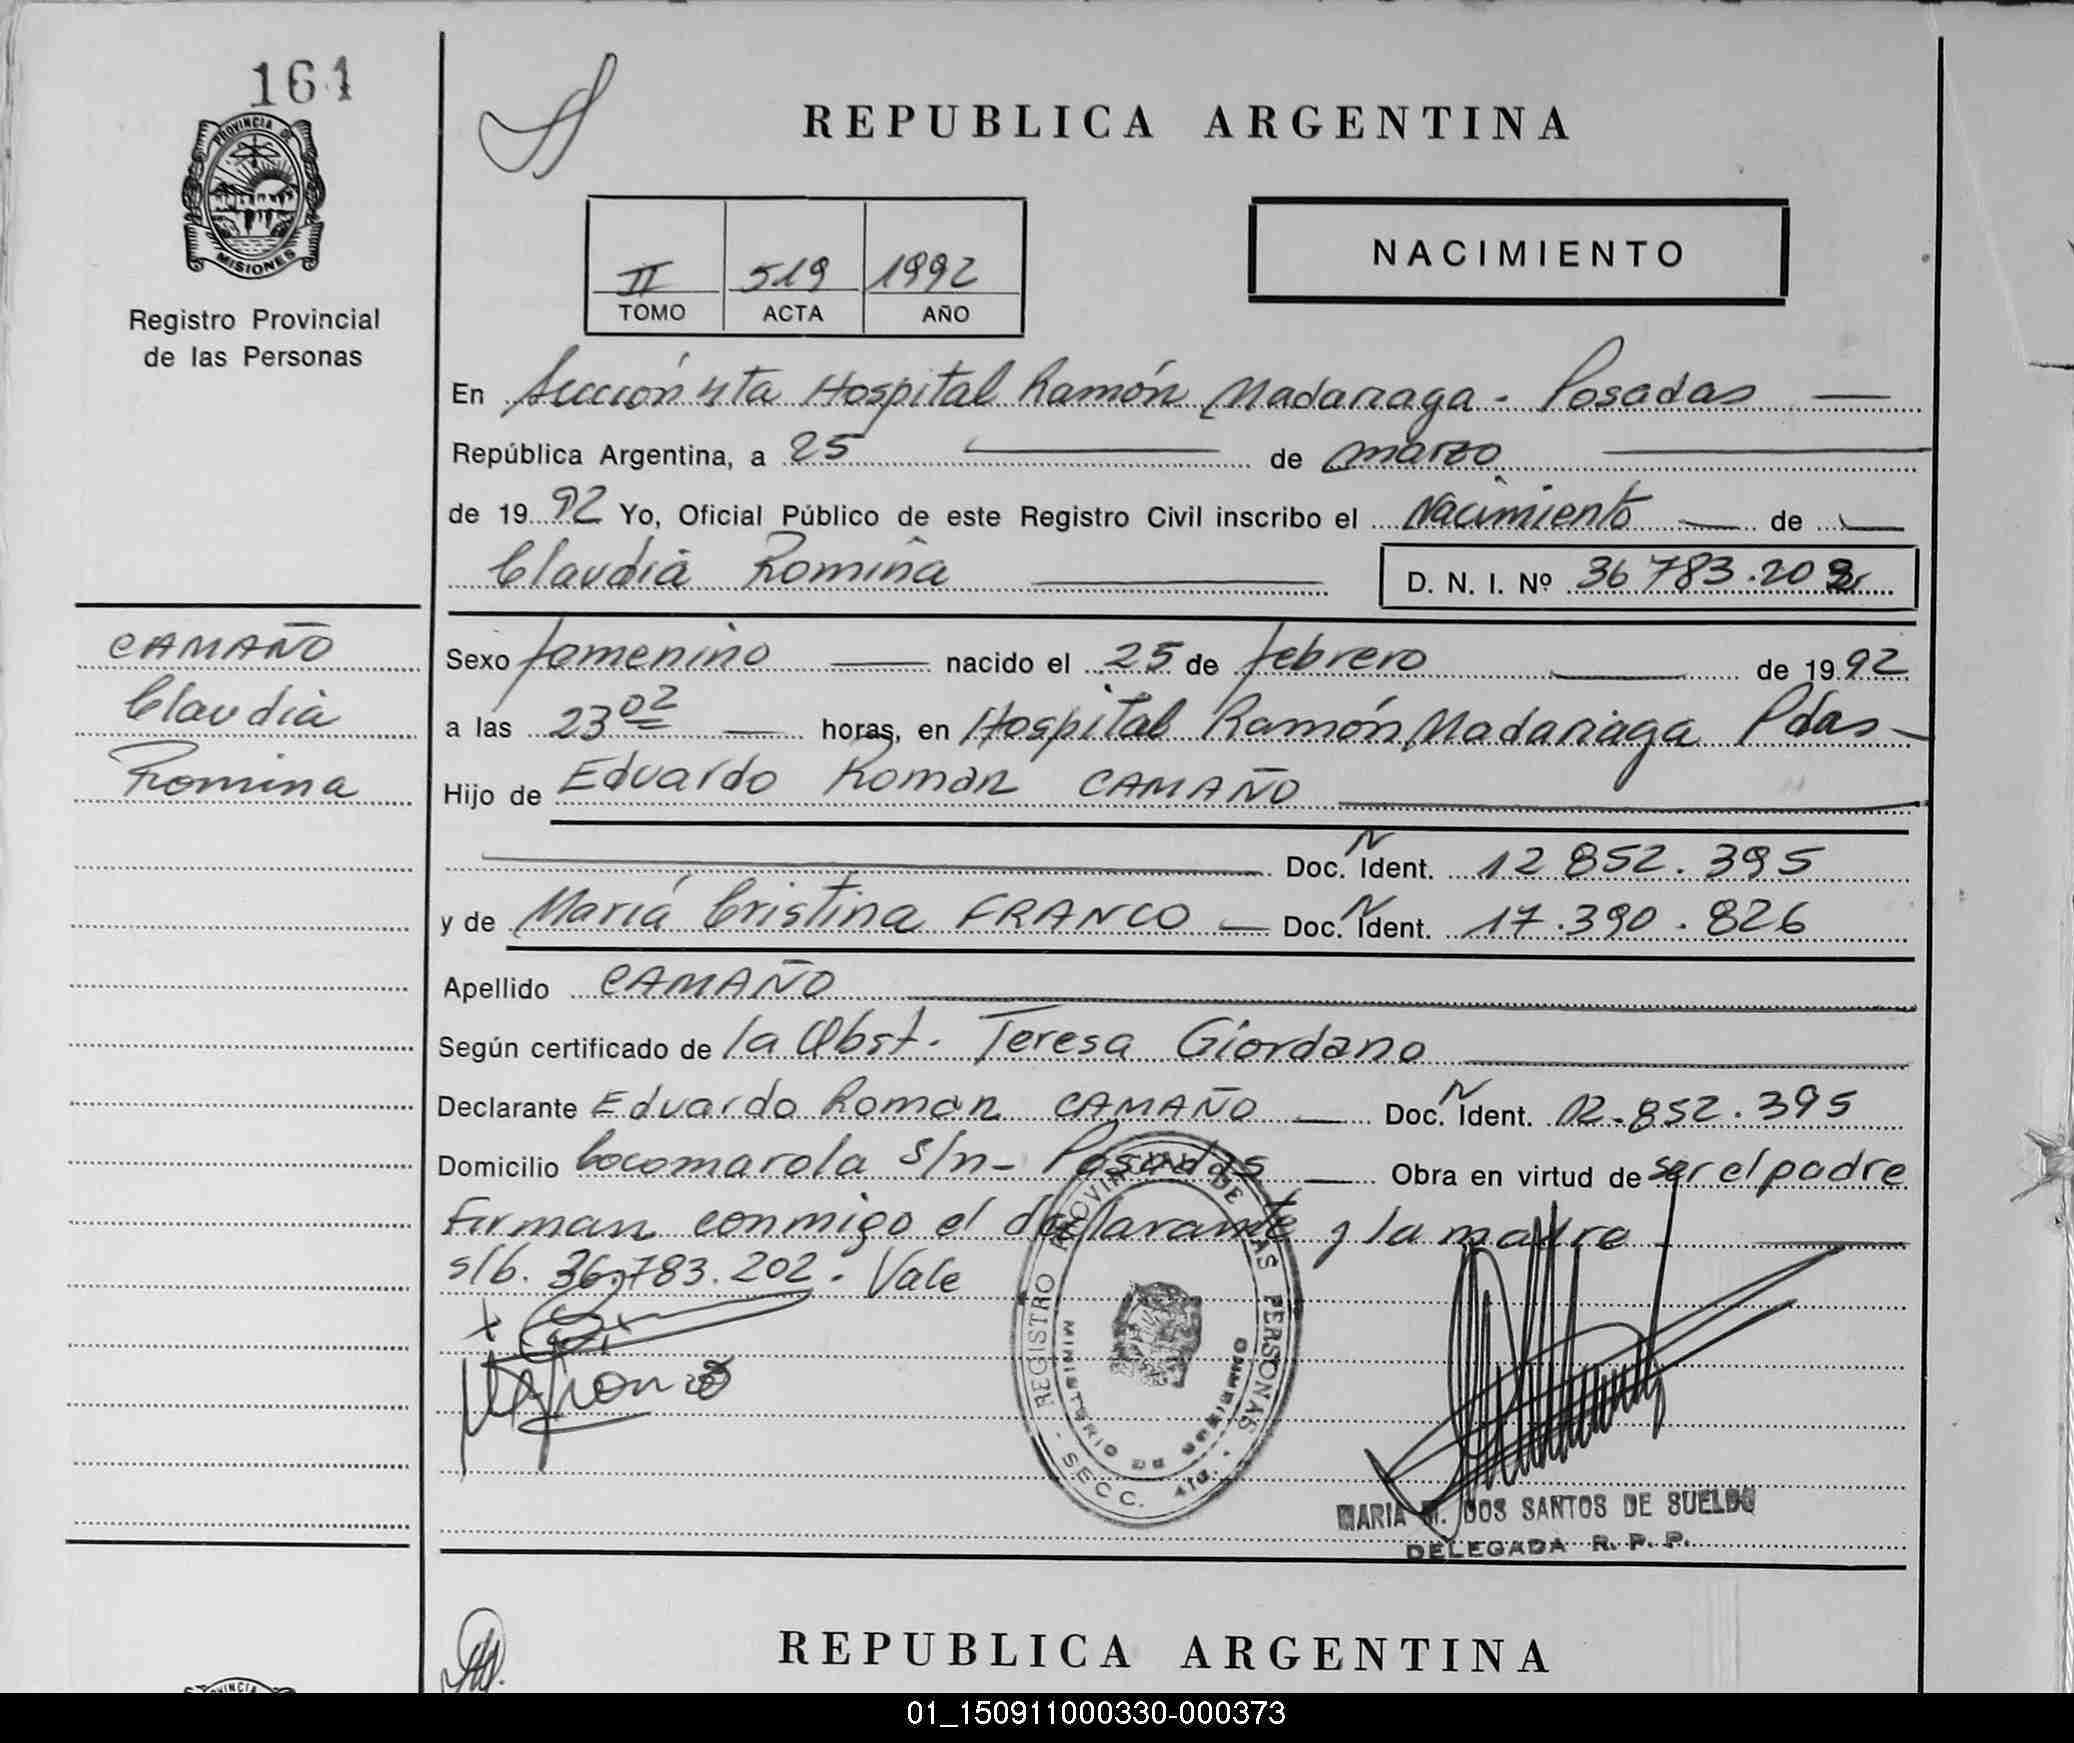 161
PROVINCIA DE
MISIONES
Registro Provincial
de las Personas
REPUBLICA ARGENTINA
II 519 1992
TOMO ACTA AÑO
NACIMIENTO
En Sección 4ta Hospital Ramón Madariaga - Posadas
República Argentina, a 25 de marzo
de 1992 Yo, Oficial Público de este Registro Civil inscribo el Nacimiento de
Claudia Romina D. N. I. Nº 36783.202
CAMAÑO
Claudia
Romina
Sexo femenino nacido el 25 de febrero de 1992
a las 23 02 horas, en Hospital Ramón Madariaga Pdas
Hijo de Eduardo Roman CAMAÑO
Doc. N Ident. 12 852.395
y de María Cristina FRANCO Doc. N Ident. 17.390.826
Apellido CAMAÑO
Según certificado de la Obst. Teresa Giordano
Declarante Eduardo Roman CAMAÑO Doc. N Ident. 12.852.395
Domicilio Cocomarola s/n - Posadas Obra en virtud de ser el padre
Firman conmigo el declarante y la madre
s/b. 36.783.202. Vale
REGISTRO PROVINCIAL DE LAS PERSONAS - SECC. 4ta. -
MINISTERIO DE GOBIERNO
MARIA M. DOS SANTOS DE SUELDO
DELEGADA R. P. P.
REPUBLICA ARGENTINA
01_150911000330-000373